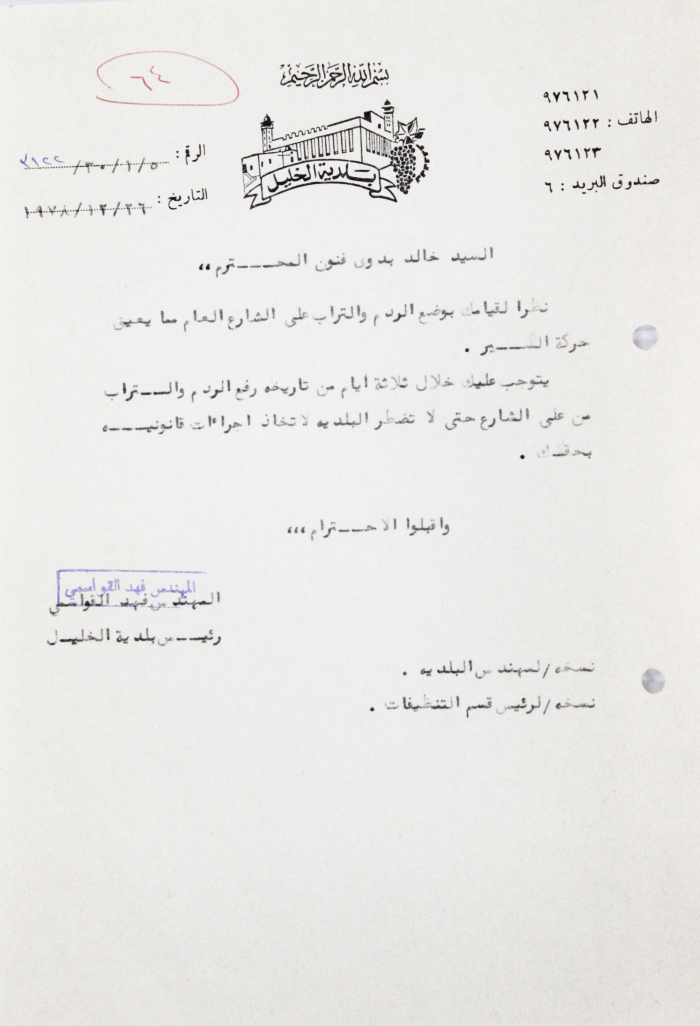 ٦٤
بسم الله الرحمن الرحيم
بلدية الخليل
٩٧٦١٢١
الهاتف : ٩٧٦١٢٢
٩٧٦١٢٣
صندوق البريد : ٦
الرقم : ٥/١/٣٠/٣١٢٢
التاريخ : ١٩٧٨/١٢/٢٦
السيد خالد بدوى فنون المحـــترم ،،
نظرا لقيامك بوضع الردم والتراب على الشارع العام مما يعيق
حركة الســـير .
يتوجب عليك خلال ثلاثة أيام من تاريخه رفع الردم والــتراب
من على الشارع حتى لا تضطر البلديه لاتخاذ اجراءات قانونيـــه
بحقك .
واقبلوا الاحـــترام ،،،
المهندس فهد القواسمي
المهندس فهد القواسمي
رئيـــس بلدية الخليل
نسخه / لمهندس البلديه .
نسخه / لرئيس قسم التنظيفات .